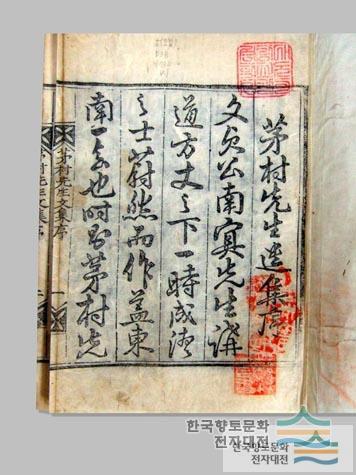 茅村先生遺集序
文貞公南冥先生講
道方丈之下一時成德
之士蔚然而作蓋東
南一也時茅村先
茅村先生文集序
한국향토문화
전자대전
한국향토문화
전자대전